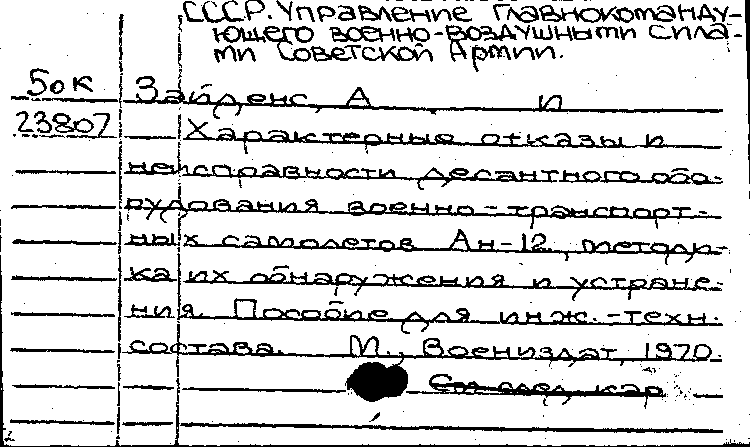 СССР. Управление главнокоманду-
ющего военно-воздушными сила-
ми Советской Армии.
50к Зайденс, А и
23807 Характерные отказы и
неисправности десантного обо-
рудования военно-транспорт-
ных самолетов Ан-12, методи-
ка их обнаружения и устране-
ния. Пособие для инж.-техн.
состава. М., Воениздат, 1970.
См след. кар